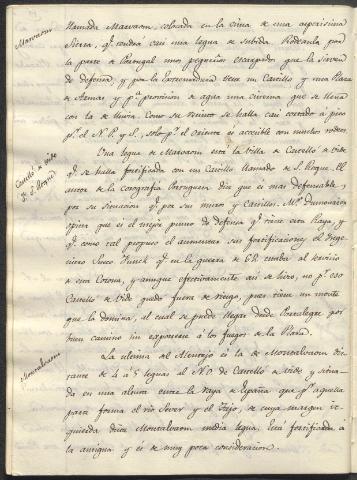 Marvaom
llamada Marvaom, colocada en la cima de una asperisima
Sierra, qe. tendrá casi una legua de subida. Rodeanla por
la parte de Portugal unos peñascos escarpados que la sirven
de defensa, y por la Extremadura tiene un Castillo y una Plaza
de Armas, y pa. provision de agua una cisterna que se llena
con la de lluvia. Como su recinto se halla casi cortado á pico
pr. el N. P. y S., solo pr. el oriente es accesible con muchos rodeos.
Castello de Vide
y S. Roque
Una legua de Marvaom está la Villa de Castello de Vide
qe. se halla fortificada con un Castillo llamado de S. Roque. El
autor de la corografia Portuguesa dice que es mas defensable,
por su situacion qe. por sus muros y castillos. Mr. Dumouriez
opina que es el mejor punto de defensa qe. tiene esta Raya, y
qe. como tal propuso el aumentar sus fortificaciones el Inge-
niero en la guerra de 62 estaba al servicio
de esta Corona, y aunque efectivamente asi se hizo, no pr. eso
Castello de Vide quedó fuera de riesgo, pues tiene un monte
que la domina, al cual se puede llegar desde Portalegre por
buen camino sin exponerse á los fuegos de la Plaza.
Montalvaom
La ultima del Alentejo es la de Montalvaom dis-
tante de 4 á 5 leguas al N.O. de Castello de Vide y situa-
da en una altura entre la raya de España que pr. aquella
parte forma el rio Sever y el Tajo, de cuya margen iz-
quierda dista Montalvaom media legua. Está fortificada á
la antigua y es de muy poca consideracion.